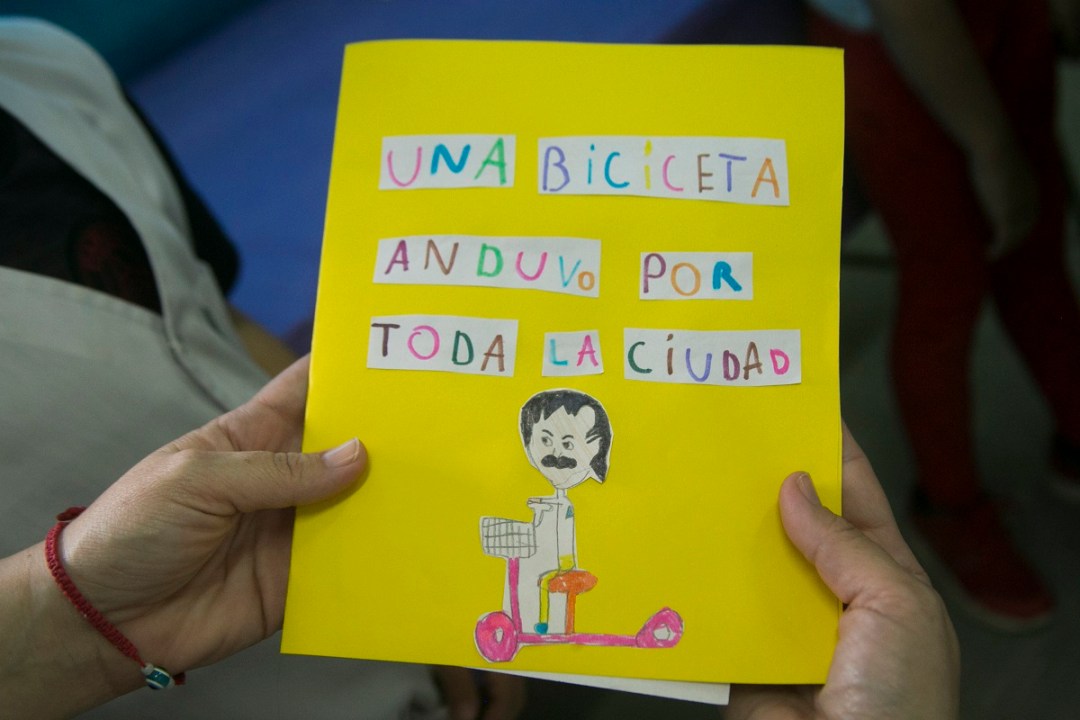 UNA BICICETA
ANDUVo POR
TODA LA CIUDAD